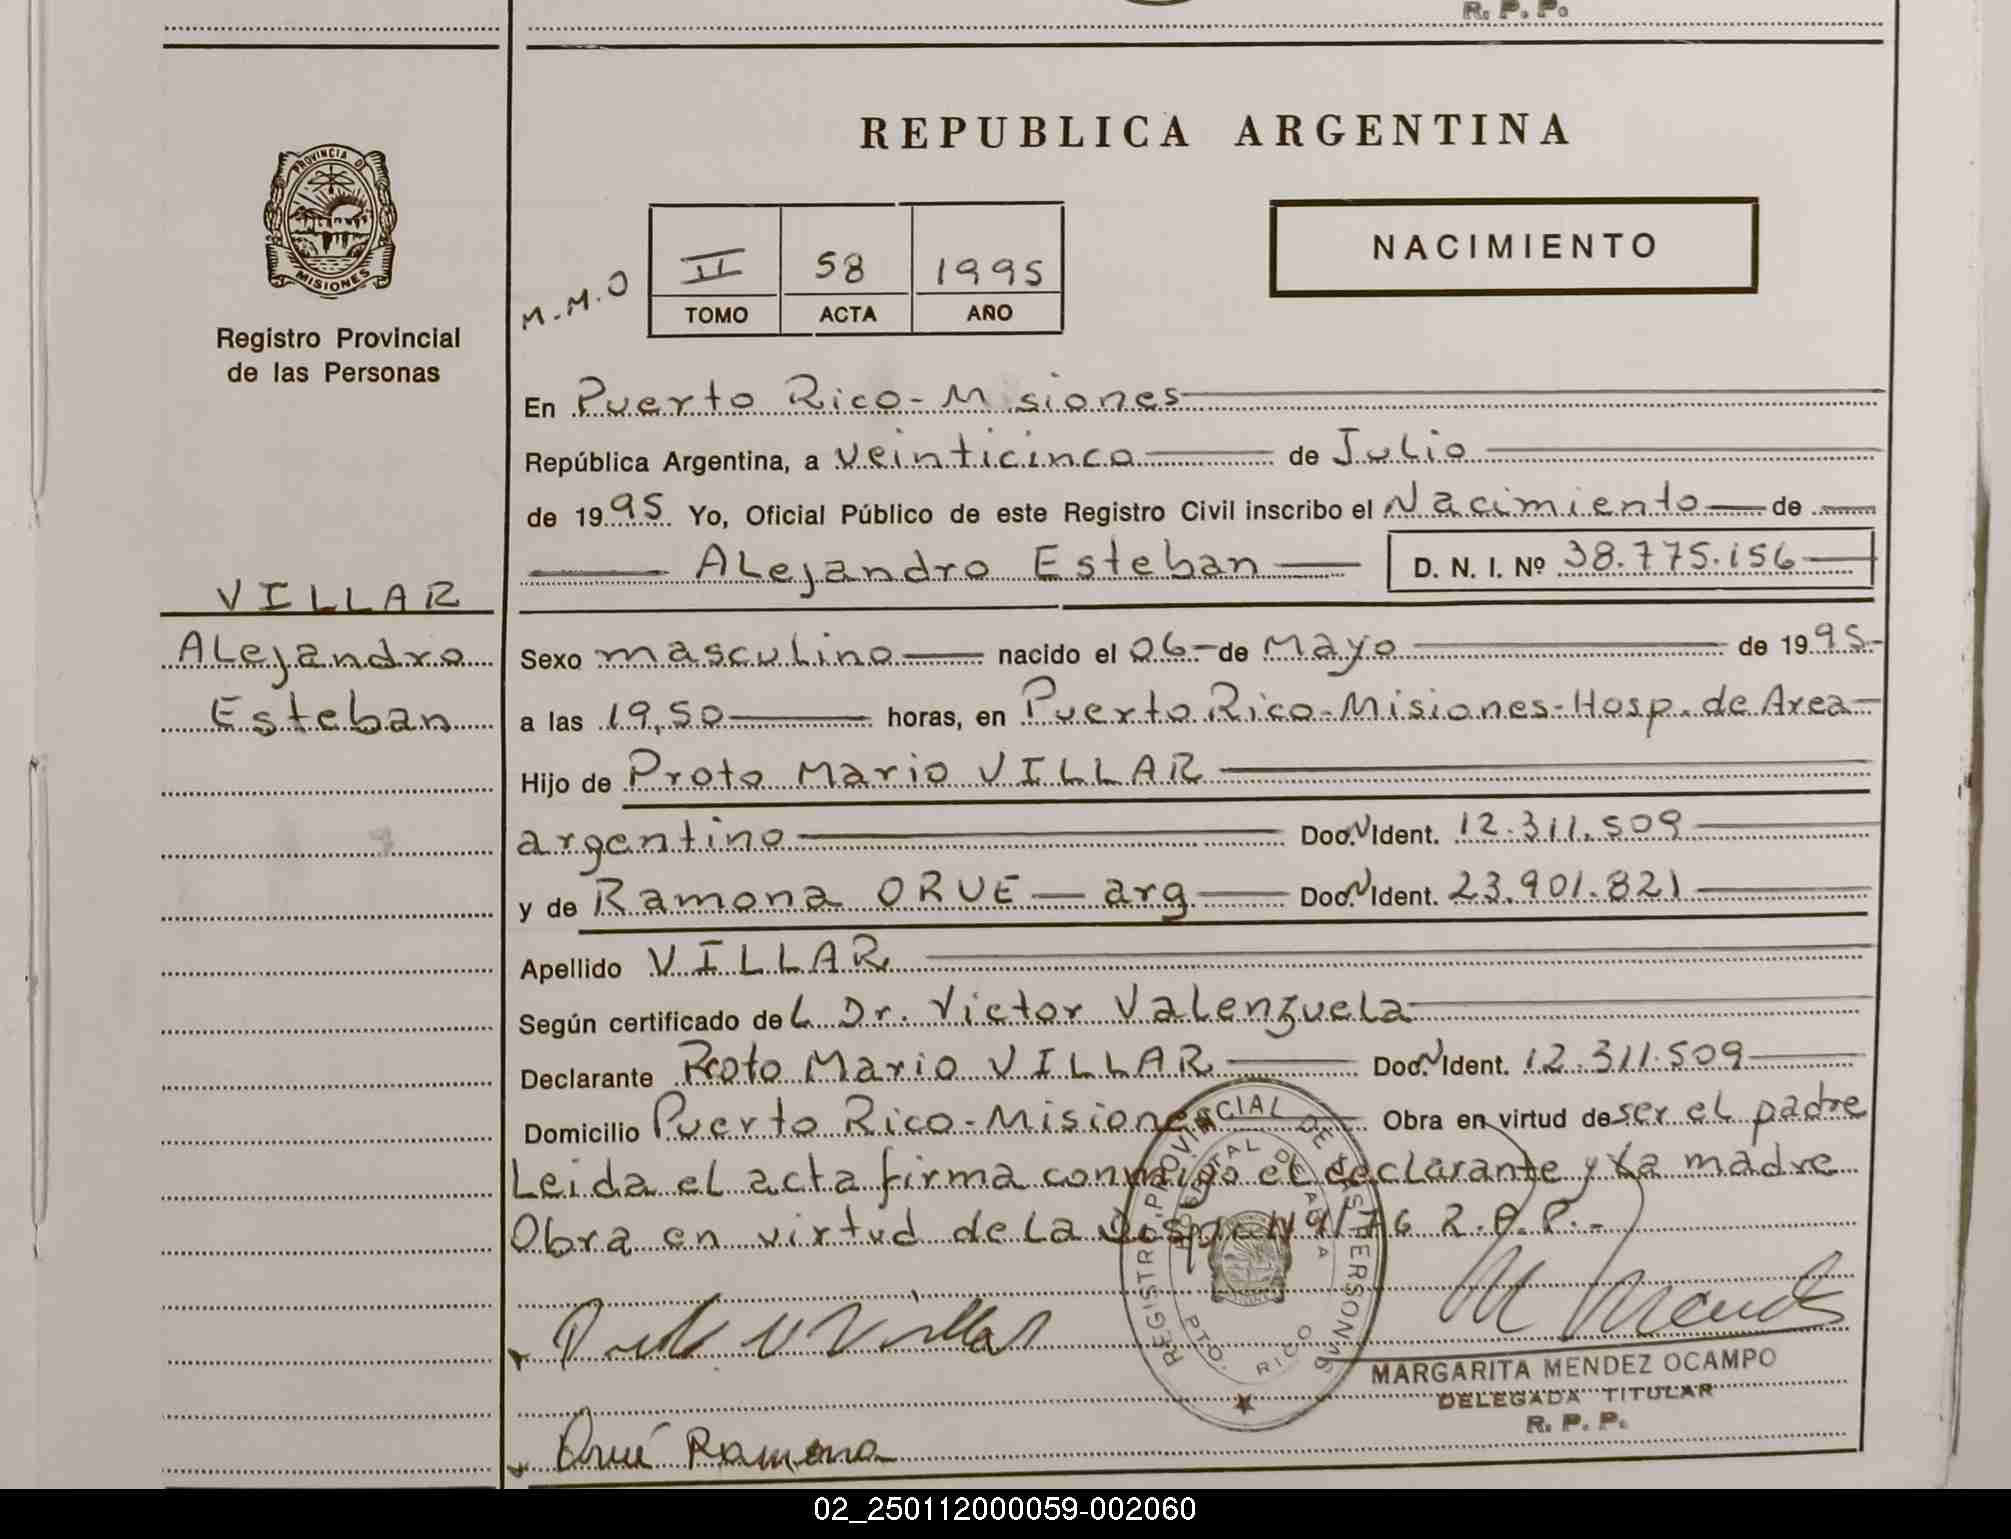 R. P. P.
REPUBLICA ARGENTINA
PROVINCIA DE
MISIONES
Registro Provincial
de las Personas
NACIMIENTO
M.M.O
II 58 1995
TOMO ACTA AÑO
En Puerto Rico - M siones
República Argentina, a veinticinco de Julio
de 1995 Yo, Oficial Público de este Registro Civil inscribo el Nacimiento de
Alejandro Esteban D. N. I. Nº 38.775.156
VILLAR
Alejandro
Esteban
Sexo masculino nacido el 06 - de Mayo de 1995 -
a las 19,50 horas, en Puerto Rico - Misiones - Hosp. de Area -
Hijo de Proto Mario VILLAR
argentino Doc. N Ident. 12.311.509
y de Ramona ORUE - arg Doc. N Ident. 23.901.821
Apellido VILLAR
Según certificado del Dr. Victor Valenzuela
Declarante Proto Mario VILLAR Doc. N Ident. 12.311.509
Domicilio Puerto Rico - Misiones Obra en virtud de ser el padre
Leida el acta firma conmigo el declarante y la madre
Obra en virtud de la Disp. Nº 1/76 R.P.P. -
REGISTRO PROVINCIAL DE LAS PERSONAS
HOSPITAL DE AREA
PTO. RICO
MARGARITA MENDEZ OCAMPO
DELEGADA TITULAR
R. P. P.
Orué Ramona
02_250112000059-002060